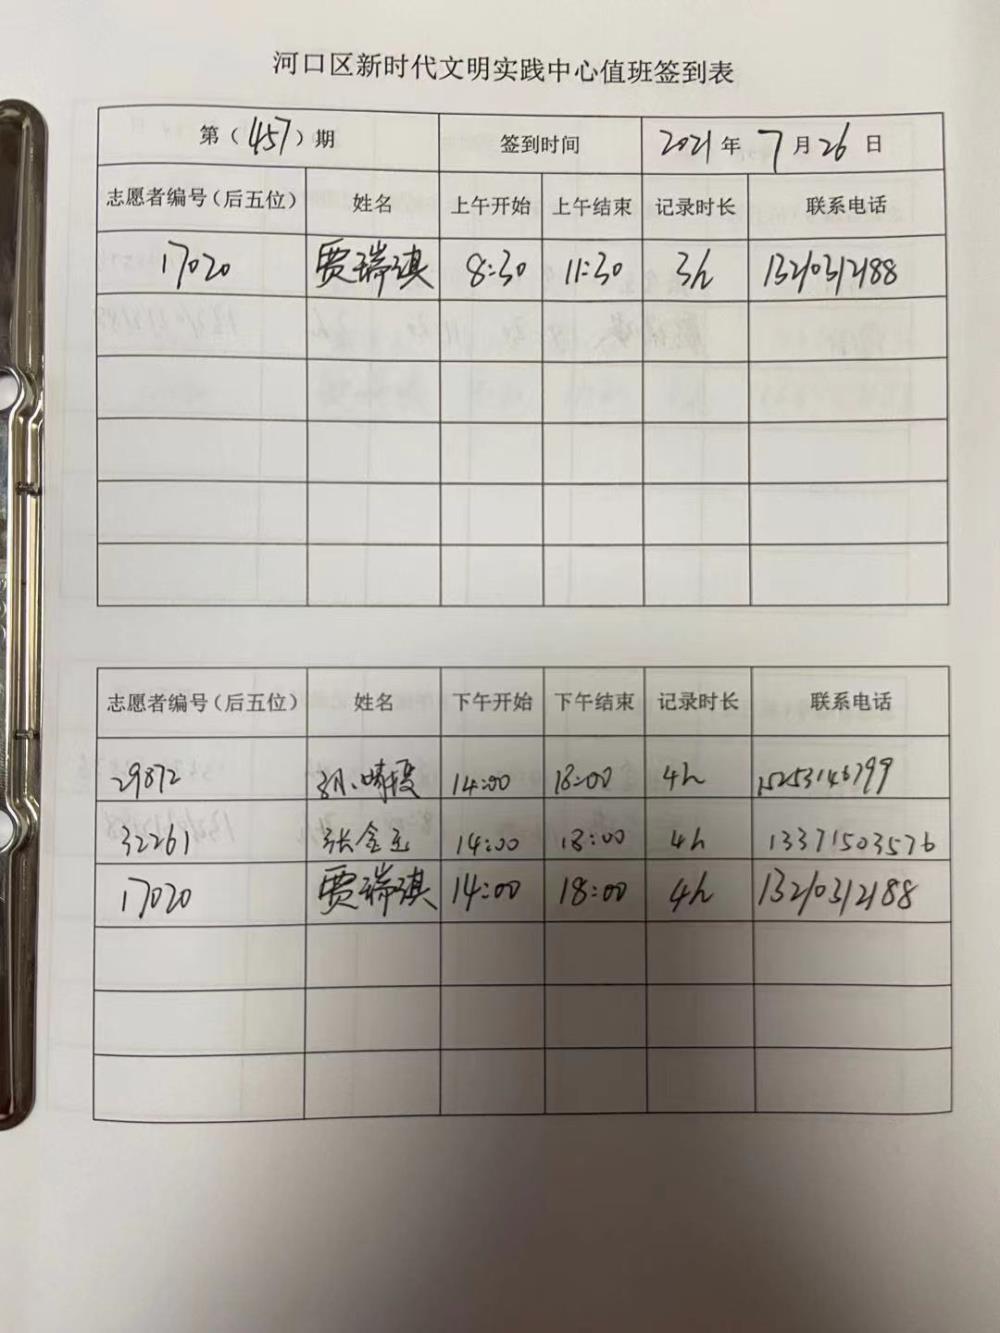 河口区新时代文明实践中心值班签到表
第（457）期 签到时间 2021年7月26日
志愿者编号（后五位） 姓名 上午开始 上午结束 记录时长 联系电话
17020 贾瑞琪 8:30 11:30 3h 13210312188
志愿者编号（后五位） 姓名 下午开始 下午结束 记录时长 联系电话
29872 14:00 18:00 4h
32261 张金玉 14:00 18:00 4h 13371503576
17020 贾瑞琪 14:00 18:00 4h 13210312188